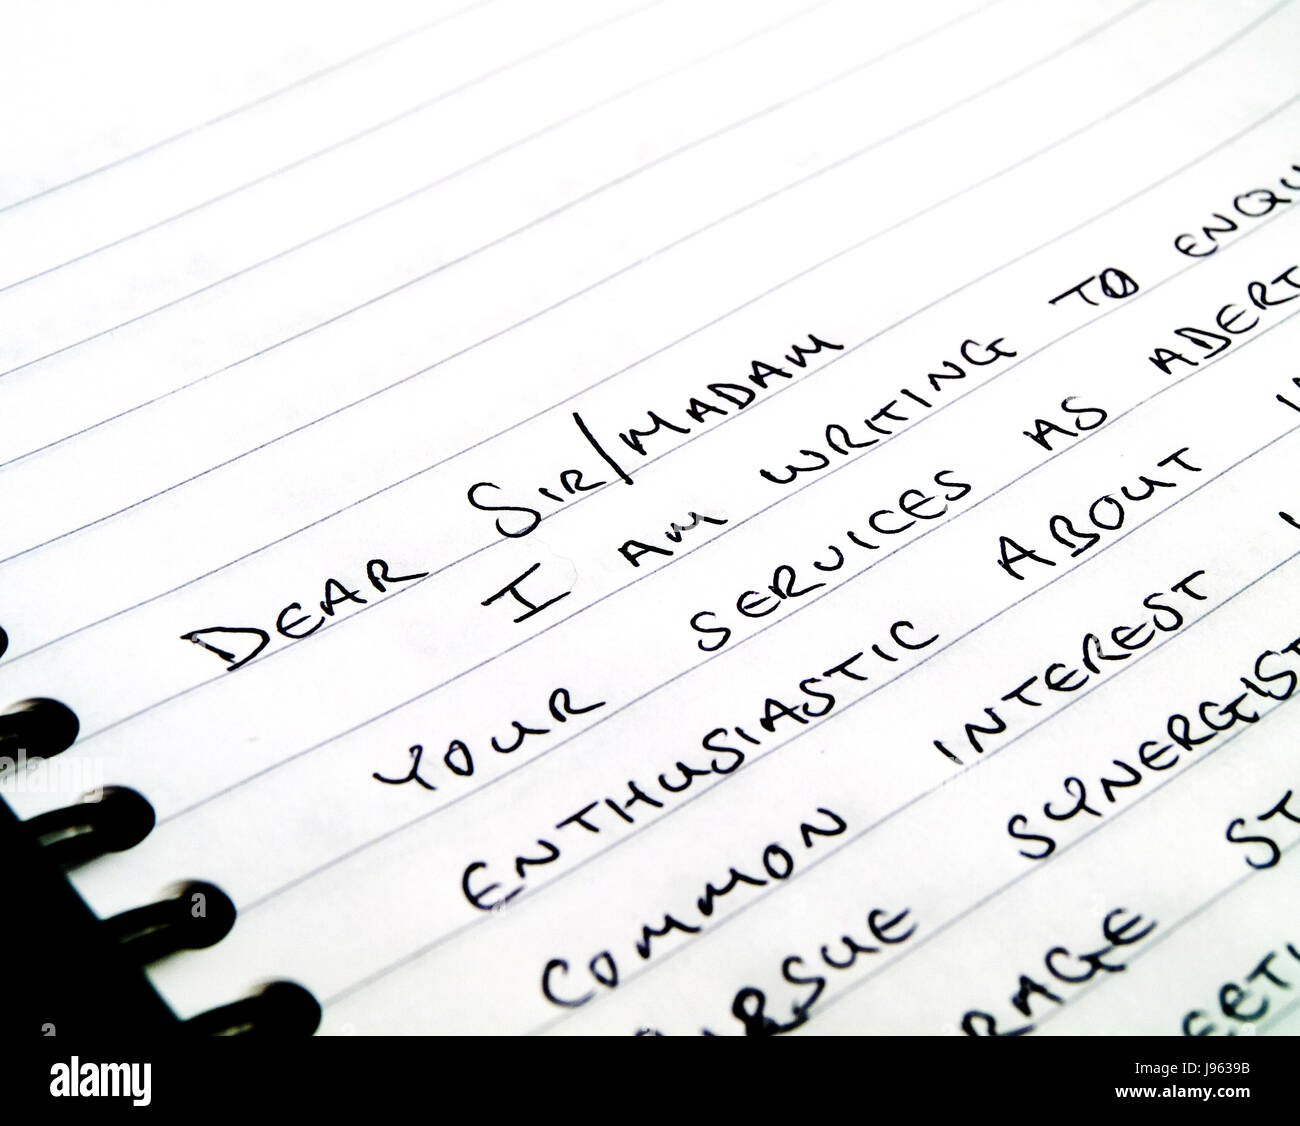 DEAR SIR/MADAM
I AM WRITING TO ENQU
YOUR SERVICES AS ADERT
ENTHUSIASTIC ABOUT
COMMON INTEREST
URSUE SYNERGIST
RAGE ST
EETI
alamy
Image ID: J9639B
www.alamy.com